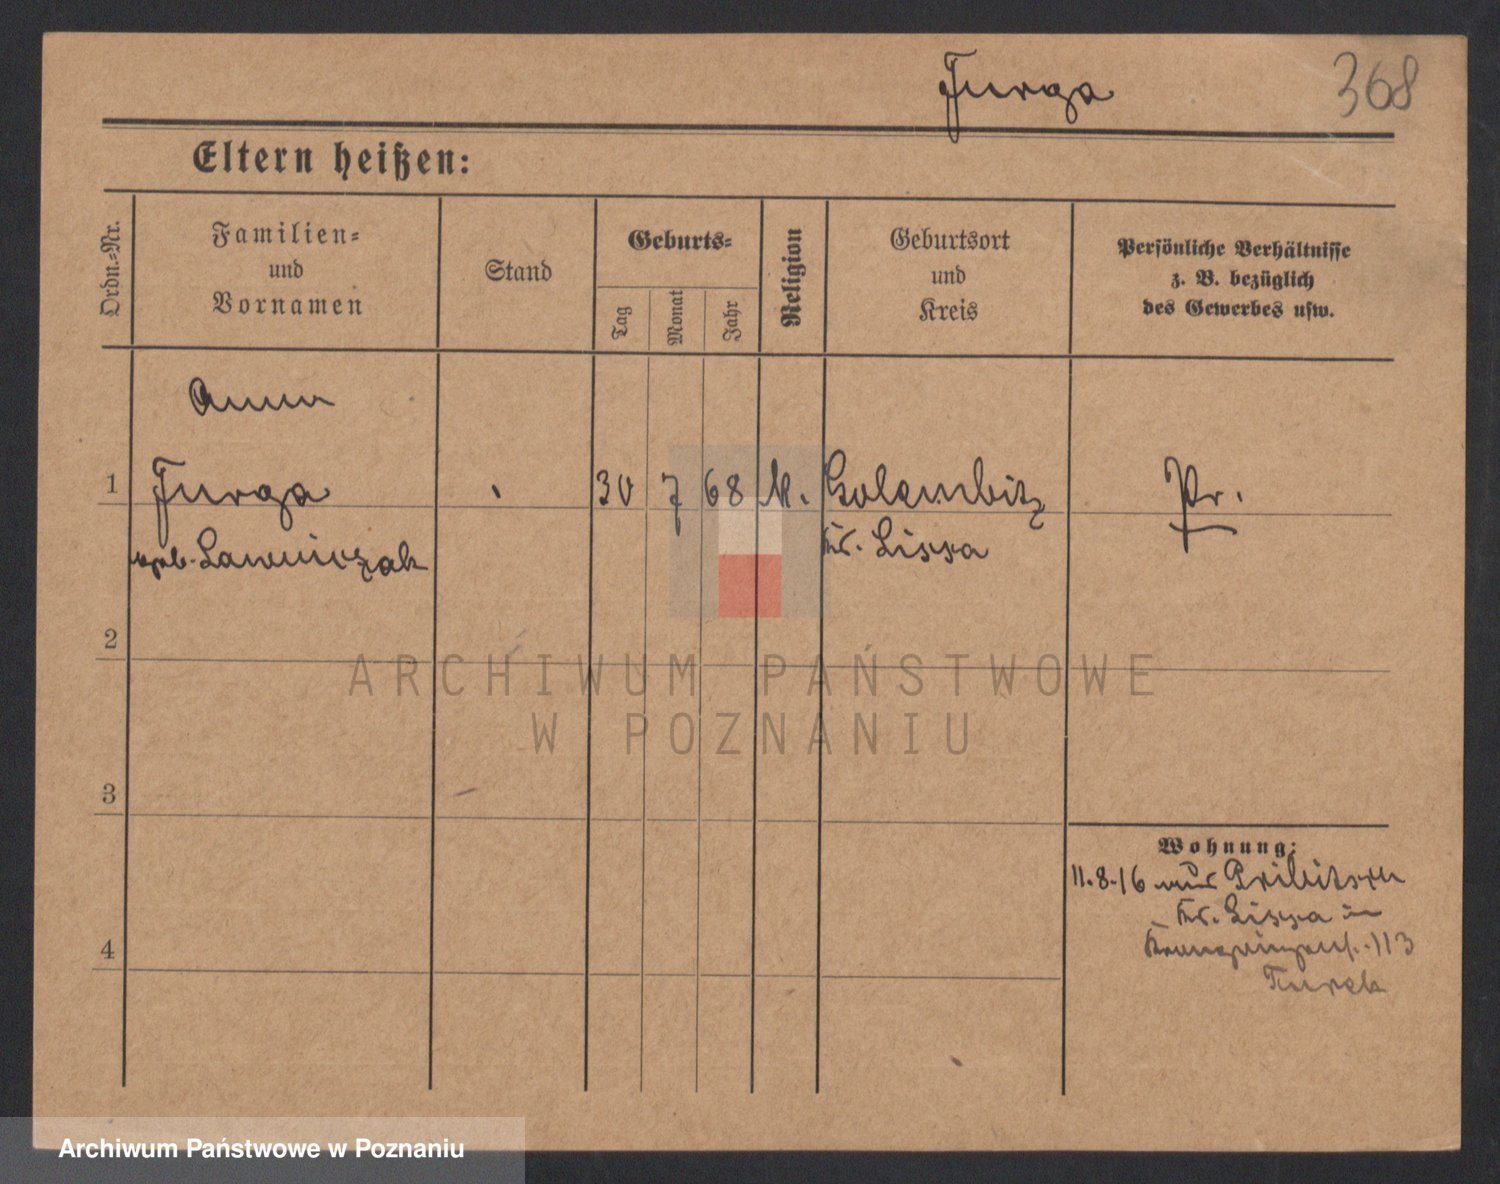 Jurga 368
Eltern heißen:
Ordn.-Nr.
Familien-
und
Vornamen
Stand
Geburts-
Tag
Monat
Jahr
Religion
Geburtsort
und
Kreis
Persönliche Verhältnisse
z. B. bezüglich
des Gewerbes usw.
Anna
1 Jurga 30 7 68 k. Golembitz Pr.
geb. Lawniczak Kr. Lissa
2
ARCHIWUM PAŃSTWOWE
W POZNANIU
3
Wohnung:
11.8.16 aus Pribitsch
Kr. Lissa in
4 Kronprinzenstr. 113
Turek
Archiwum Państwowe w Poznaniu